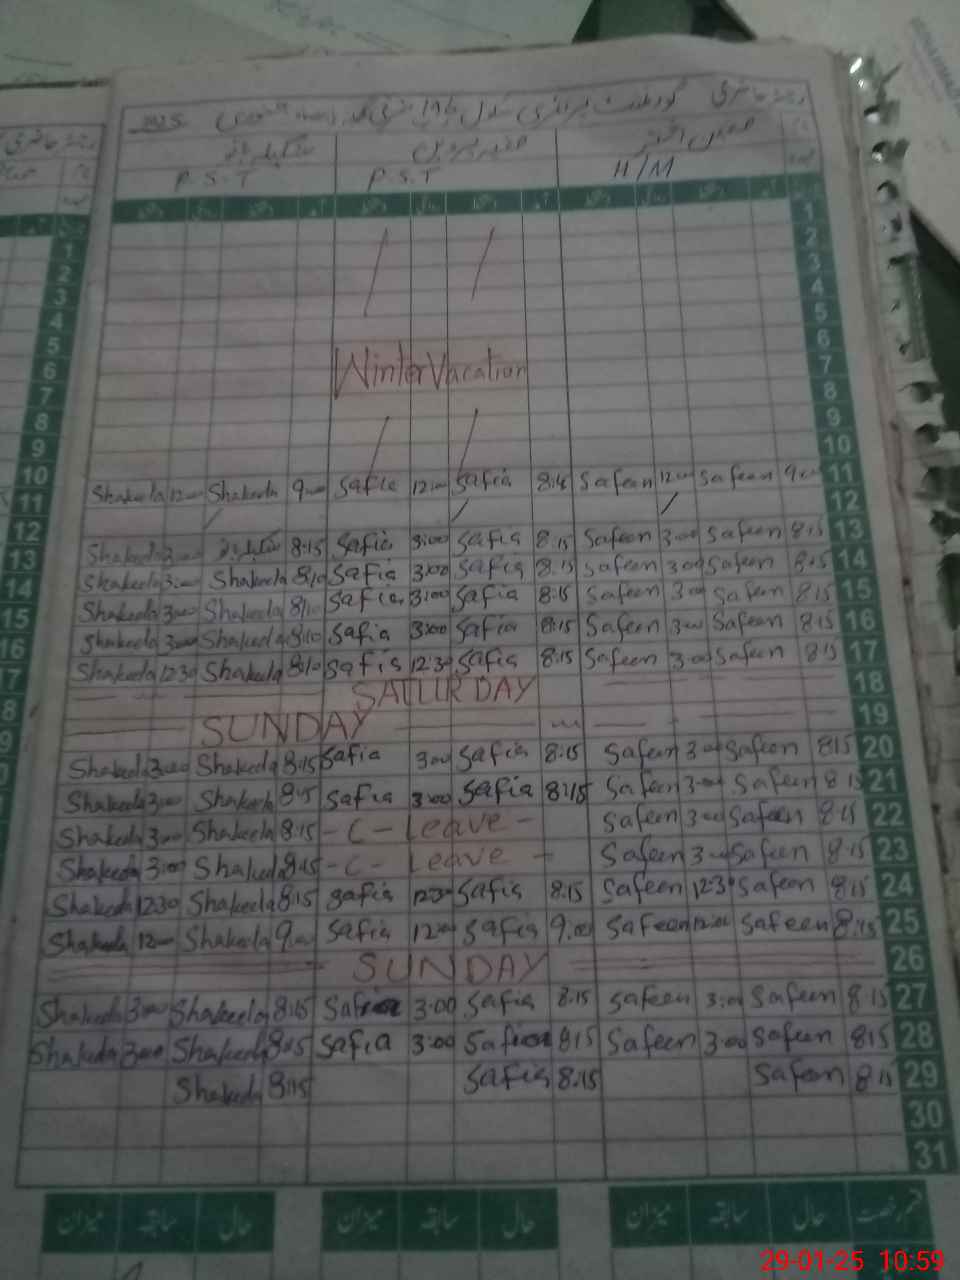 2025
P.S.T P.S.T H/M
1
2
3
4
5
6
Winter Vacation 7
8
9
10
Shakeela 12:00 Shakeela 9:00 Safia 12:00 Safia 8:15 Safeen 12:00 Safeen 9:00 11
12
Shakeela 3:00 8:15 Safia 3:00 Safia 8:15 Safeen 3:00 Safeen 8:15 13
Shakeela 3:00 Shakeela 8:10 Safia 3:00 Safia 8:15 Safeen 3:00 Safeen 8:15 14
Shakeela 3:00 Shakeela 8:10 Safia 3:00 Safia 8:15 Safeen 3:00 Safeen 8:15 15
Shakeela 3:00 Shakeela 8:10 Safia 3:00 Safia 8:15 Safeen 3:00 Safeen 8:15 16
Shakeela 12:30 Shakeela 8:10 Safia 12:30 Safia 8:15 Safeen 3:00 Safeen 8:15 17
SATURDAY 18
SUNDAY 19
Shakeela 3:00 Shakeela 8:15 Safia 3:00 Safia 8:15 Safeen 3:00 Safeen 8:15 20
Shakeela 3:00 Shakeela 8:15 Safia 3:00 Safia 8:15 Safeen 3:00 Safeen 8:15 21
Shakeela 3:00 Shakeela 8:15 - C - Leave - Safeen 3:00 Safeen 8:15 22
Shakeela 3:00 Shakeela 8:15 - C - Leave - Safeen 3:00 Safeen 8:15 23
Shakeela 12:30 Shakeela 8:15 Safia 12:30 Safia 8:15 Safeen 12:30 Safeen 8:15 24
Shakeela 12:00 Shakeela 9:00 Safia 12:00 Safia 9:00 Safeen 12:00 Safeen 8:15 25
SUNDAY 26
Shakeela 3:00 Shakeela 8:15 Safia 3:00 Safia 8:15 Safeen 3:00 Safeen 8:15 27
Shakeela 3:00 Shakeela 8:15 Safia 3:00 Safia 8:15 Safeen 3:00 Safeen 8:15 28
Shakeela 8:15 Safia 8:15 Safeen 8:15 29
30
31
قسم رخصت حال سابقہ میزان حال سابقہ میزان حال سابقہ میزان
29-01-25 10:59